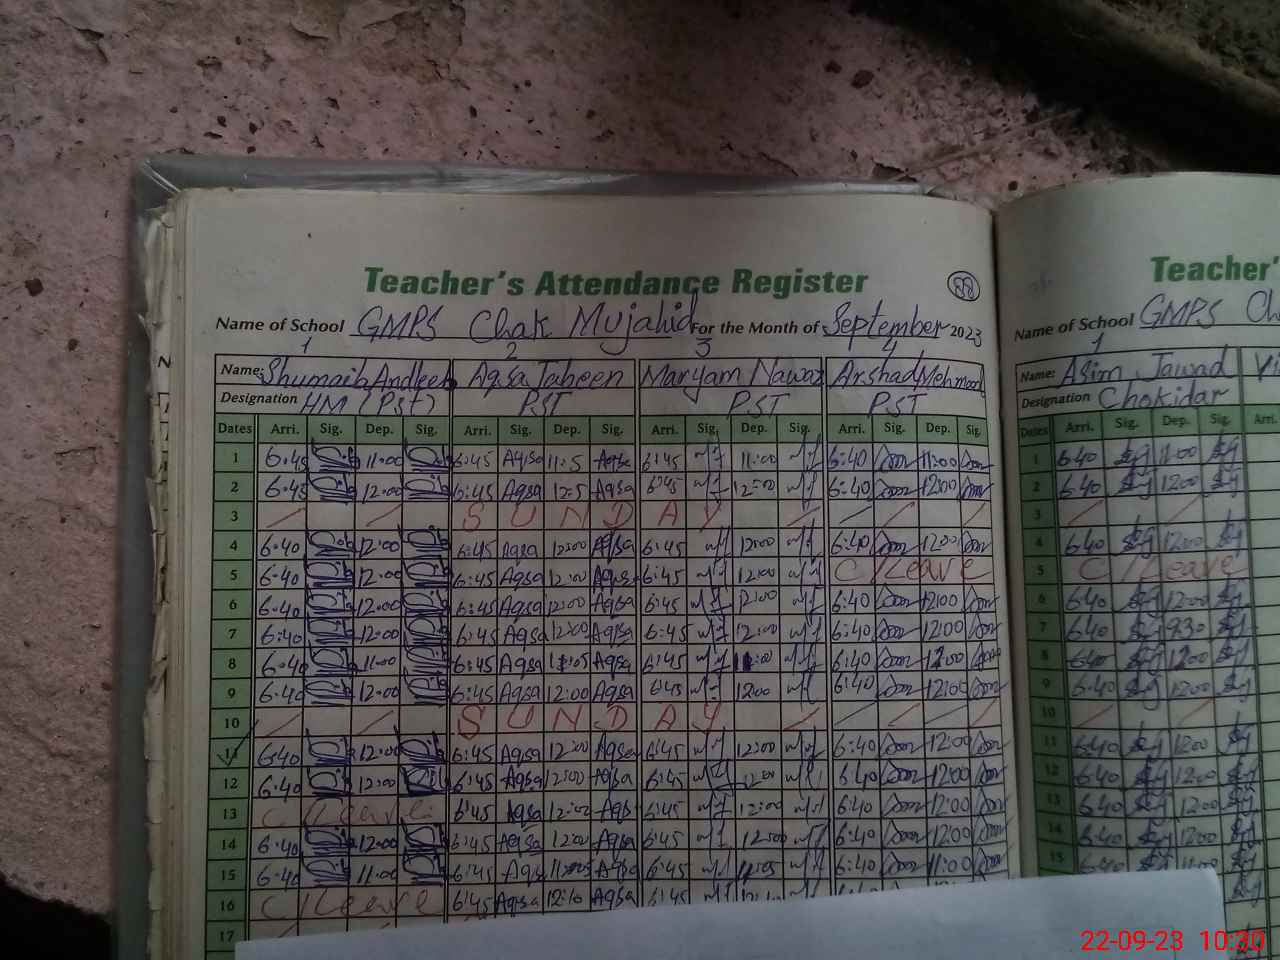 Teacher's Attendance Register
88
Name of School GMPS Chak Mujahid For the Month of September 2023
1 2 3 4
Name: Shumaila Andleeb Aqsa Jabeen Maryam Nawaz Arshad Mehmood
Designation HM (PST) PST PST PST
Dates Arri. Sig. Dep. Sig. Arri. Sig. Dep. Sig. Arri. Sig. Dep. Sig. Arri. Sig. Dep. Sig.
1 6:45 11:00 6:45 Aqsa 11:5 Aqsa 6:45 11:00 6:40 11:00
2 6:45 12:00 6:45 Aqsa 12:5 Aqsa 6:45 12:00 6:40 12:00
3 SUNDAY
4 6:40 12:00 6:45 Aqsa 12:00 Aqsa 6:45 12:00 6:40 12:00
5 6:40 12:00 6:45 Aqsa 12:00 Aqsa 6:45 12:00 C/Leave
6 6:40 12:00 6:45 Aqsa 12:00 Aqsa 6:45 12:00 6:40 12:00
7 6:40 12:00 6:45 Aqsa 12:00 Aqsa 6:45 12:00 6:40 12:00
8 6:40 11:00 6:45 Aqsa 11:05 Aqsa 6:45 11:00 6:40 12:00
9 6:40 12:00 6:45 Aqsa 12:00 Aqsa 6:45 12:00 6:40 12:00
10 SUNDAY
11 6:40 12:00 6:45 Aqsa 12:00 Aqsa 6:45 12:00 6:40 12:00
12 6:40 12:00 6:45 Aqsa 12:00 Aqsa 6:45 12:00 6:40 12:00
13 C/Leave 6:45 Aqsa 12:00 Aqsa 6:45 12:00 6:40 12:00
14 6:40 12:00 6:45 Aqsa 12:00 Aqsa 6:45 12:00 6:40 12:00
15 6:40 11:00 6:45 Aqsa 11:05 Aqsa 6:45 11:05 6:40 11:00
16 C/Leave 6:45 Aqsa 12:10 Aqsa 6:45
17
Teacher'
Name of School GMPS Ch
1
Name: Asim Jawad
Designation Chokidar
Dates Arri. Sig. Dep. Sig.
1 6:40 11:00
2 6:40 12:00
3
4 6:40 12:00
5 C/Leave
6 6:40 12:00
7 6:40 9:30
8 6:40 12:00
9 6:40 12:00
10
11 6:40 12:00
12 6:40 12:00
13 6:40 12:00
14 6:40 12:00
15 6:40 11:00
22-09-23 10:30